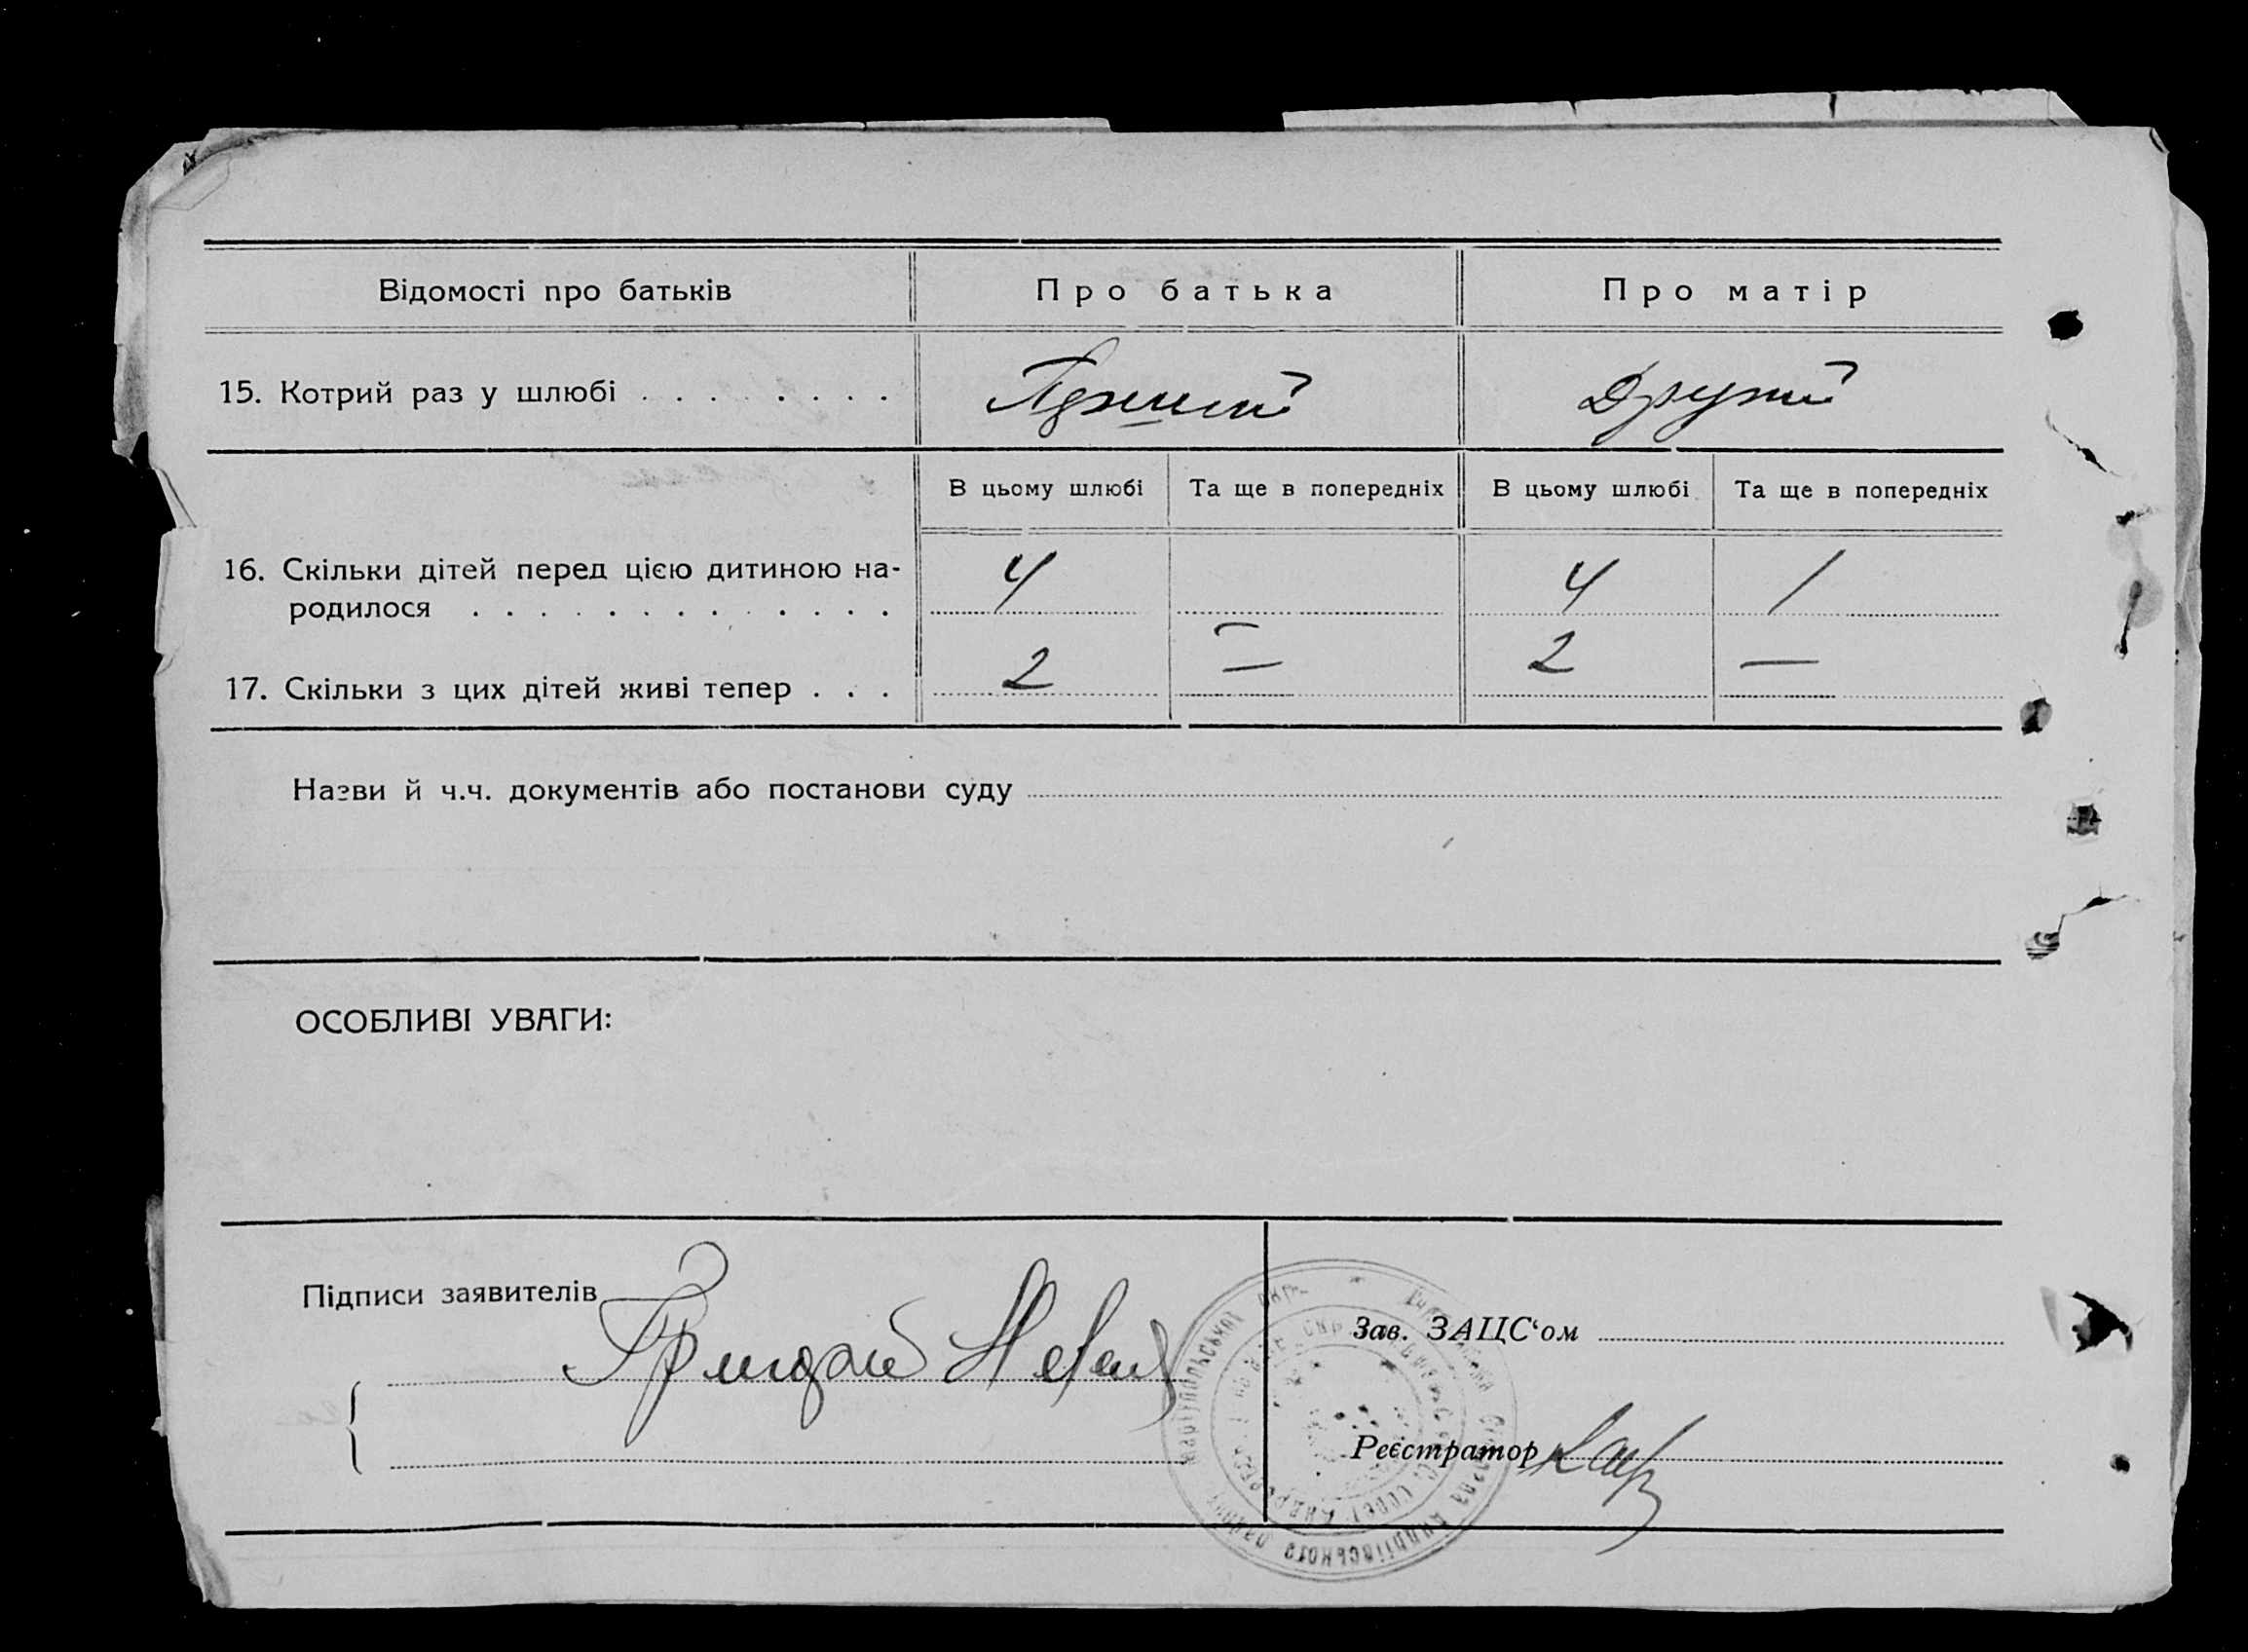 Відомості про батьків Про батька Про матір
15. Котрий раз у шлюбі . . . . . . . . Другий
В цьому шлюбі Та ще в попередніх В цьому шлюбі Та ще в попередніх
16. Скільки дітей перед цією дитиною на-
родилося . . . . . . . . . . . . . 4 4 1
17. Скільки з цих дітей живі тепер . . . 2 — 2 —
Назви й ч.ч. документів або постанови суду
ОСОБЛИВІ УВАГИ:
Підписи заявителів
Зав. ЗАЦС‘ом
Реєстратор